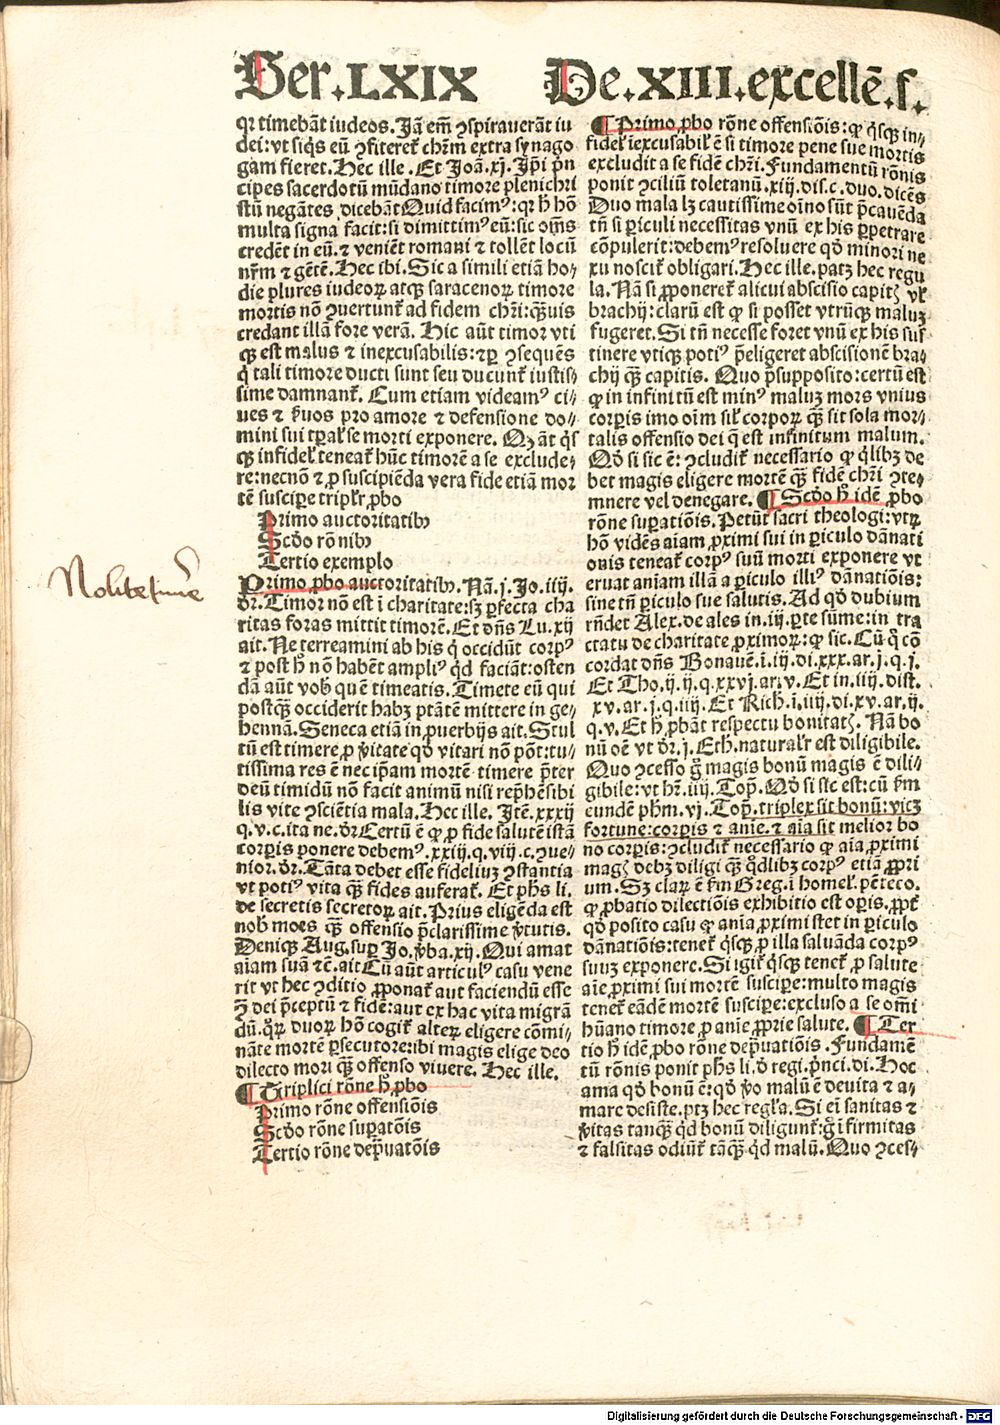 Ser.LXIX De.XIII.excellē.f.
qꝛ timebāt iudeos. Jā em̄ ↄspirauerāt iu
dei: vt siq̇s eū ↄfiteret᷑ chr̄m extra synago
gam fieret. Hec ille. Et Joā.xj. Jp̄i p̄n
cipes sacerdotū mūdano timore pleni chri
stū negātes dicebāt Quid facimꝰ: qꝛ h̄ hō
multa signa facit: si dimittimꝰ eū: sic om̄s
credēt in eū. ⁊ veniēt romani ⁊ tollēt locū
nr̄m ⁊ gētē. Hec ibi. Sic a simili etiā ho-
die plures iudeoꝝ atqꝫ saracenoꝝ timore
mortis nō ↄuertunt᷑ ad fidem chr̄i: qꝫuis
credant illā fore verā. Hic aūt timor vti
qꝫ est malus ⁊ inexcusabilis: ⁊ ꝑ ↄsequēs
q̇ tali timore ducti sunt seu ducunt᷑ iustis-
sime damnant᷑. Cum etiam videamꝰ ci-
ues ⁊ ẜuos pro amore ⁊ defensione do-
mini sui tꝑalr̄ se morti exponere. Qꝫ āt q̇s
qꝫ infidel̓ teneat᷑ hūc timorē a se exclude-
re: necnō ⁊ ꝓ suscipiēda vera fide etiā mor
tē suscipe triplr̄ ꝓbo
Primo auctoritatibꝰ
Scd̄o rōnibꝰ
Tertio exemplo
Primo ꝓbo auctoritatibꝰ. Nā.j. Jo. iiij.
dr̄. Timor nō est ī charitate: sꝫ ꝑfecta cha
ritas foras mittit timorē. Et dn̄s Lu. xij
ait. Ne terreamini ab his q̇ occidūt corpꝰ
⁊ post h̄ nō habēt ampliꝰ qd̄ faciāt: osten
dā aūt vob̓ quē timeatis. Timete eū qui
postqꝫ occiderit habꝫ ptātē mittere in ge-
hennā. Seneca etiā in ꝓuerbijs ait. Stul
tū est timere ꝓ v̓itate qd̓ vitari nō pōt: tu-
tissima res ē nec ip̄am mortē timere p̄ter
deū timidū nō facit animū nisi rep̄hēsibi
lis vite ↄsciētia mala. Hec ille. Jtē. xxxij
q.v.c. ita ne. dr̄ Certū ē ꝙ ꝓ fide salutē istā
corpis ponere debemꝰ. xxiij.q.viij.c. ↄue-
nior. dr̄. Tāta debet esse fideliuꝫ ↄstantia
vt potiꝰ vita qꝫ fides auferat᷑. Et ph̄s li.
de secretis secretoꝝ ait. Prius eligēda est
nob̓ moes qꝫ offensio p̄clarissime v̓tutis.
Deniqꝫ Aug. suꝑ Jo. v̓ba. xij. Qui amat
aīam suā ⁊c̄. ait Cū aūt articulꝰ casu vene
rit vt hec ↄditio ꝓponat᷑ aut faciendū esse
ↄ̄ dei p̄ceptū ⁊ fidē: aut ex hac vita migrā
dū. qꝝ duoꝝ hō cogit᷑ alteꝝ eligere cōmi-
nāte mortē ꝑsecutore: ibi magis elige deo
dilecto mori qꝫ offenso viuere. Hec ille.
¶ Triplici rōne h̄ ꝓbo
Primo rōne offensiōis
Scd̓o rōne suꝑatōis
Tertio rōne dep̄uatōis
Nolite time
¶ Primo ꝓbo rōne offensiōis: ꝙ q̇sqꝫ in-
fidel̓ īexcusabil̓ ē si timore pene sue mortis
excludit a se fidē chr̄i. Fundamentū rōnis
ponit ↄciliū toletanū. xiij. dis. c. duo. dicēs
Duo mala lꝫ cautissime oīno sūt p̄cauēda
tn̄ si ꝑiculi necessitas vnū ex his ꝑpetrare
cōpulerit: debemꝰ resoluere qd̓ minori ne
xu noscit᷑ obligari. Hec ille. patꝫ hec regu
la. Nā si ꝓponeret᷑ alicui abscisio capitꝭ vl̓
brachij: clarū est ꝙ si posset vtrūqꝫ maluꝫ
fugeret. Si tn̄ necesse foret vnū ex his sus
tinere vtiqꝫ potiꝰ p̄eligeret abscisionē bra-
chij qꝫ capitis. Quo p̄supposito: certū est
ꝙ in infinitū est minꝰ maluꝫ mors vnius
corpis imo oīm sil̓ corpoꝝ qꝫ sit sola mor-
talis offensio dei q̄ est infinitum malum.
Qd̓ si sic ē: ↄcludit᷑ necessario ꝙ q̇libꝫ de
bet magis eligere mortē qꝫ fidē chr̄i ↄte-
mnere vel denegare. ¶ Scd̓o h̄ idē ꝓbo
rōne suꝑatiōis. Petūt sacri theologi: vtꝝ
hō vidēs aīam ꝓximi sui in ꝑiculo dānati
onis teneat᷑ corpꝰ suū morti exponere vt
eruat aniam illā a ꝑiculo illiꝰ dānatiōis:
sine tn̄ ꝑiculo sue salutis. Ad qd̓ dubium
rn̄det Alex. de ales in. iij. ꝑte sume: in tra
ctatu de charitate ꝓximoꝝ: ꝙ sic. Cū q̇ cō
cordat dn̄s Bonauē. ī. iij. di. xxx. ar. j. q. j.
Et Tho. ij. ij. q. xxvj. ar. v. Et in. iiij. dist.
xv. ar. j. q. iij. Et Rich. ī. iiij. di. xv. ar. ij.
q. v. Et h̄ ꝓbāt respectu bonitatꝭ. Nā bo
nū oē vt dr̄. j. Eth. naturalr̄ est diligibile.
Quo ↄcesso g̊ magis bonū magis ē dili-
gibile: vt hr̄. iiij. Top̄. Qd̓ si sic est: cū ẜm
eundē phm̄. vj. Top̄. triplex sit bonū: vicꝫ
fortune: corpis ⁊ anīe. ⁊ aīa sit melior bo
no corpis: ↄcludit᷑ necessario ꝙ aīa ꝓximi
magꝭ debꝫ diligi qꝫ qd̓libꝫ corpꝰ etiā ꝓpri
um. Sꝫ claꝝ ē ẜm Greg. ī homel̓. pēteco.
ꝙ ꝓbatio dilectiōis exhibitio est opis. ꝓpt̓
qd̓ posito casu ꝙ anīa ꝓximi stet in ꝑiculo
dānatiōis: tenet᷑ q̇sqꝫ ꝓ illa saluāda corpꝰ
suuꝫ exponere. Si igit᷑ q̇sqꝫ tenet᷑ ꝓ salute
aīe ꝓximi sui mortē suscipe: multo magis
tenet᷑ eādē mortē suscipe: excluso a se om̄i
hūano timore ꝓ anīe ꝓprie salute. ¶ Ter
tio h̄ idē ꝓbo rōne dep̄uatiōis. Fundamē
tū rōnis ponit ph̄s li. d̓ regi. p̄nci. di. Hoc
ama qd̓ bonū ē: qd̓ v̓o malū ē deuita ⁊ a-
mare desiste. ptꝫ hec regl̓a. Si ei̅ sanitas ⁊
v̓itas tanqꝫ qd̄ bonū diligunt᷑: g̊ ī firmitas
⁊ falsitas odiūt᷑ tāqꝫ qd̄ malū. Quo ↄces-
Digitalisierung gefördert durch die Deutsche Forschungsgemeinschaft - DFG